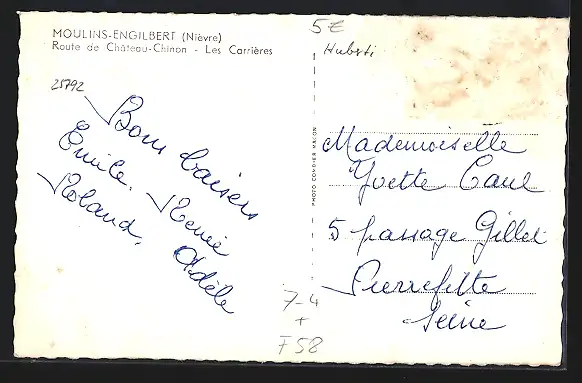 MOULINS-ENGILBERT (Nièvre)
Route de Château-Chinon - Les Carrières
21792
Bons baisers
Emile. Renée
Roland. Adèle
PHOTO COMBIER MACON
5€
Mademoiselle
Yvette Caul
5 passage Gillet
Pierrefitte
Seine
7-4
+
F58